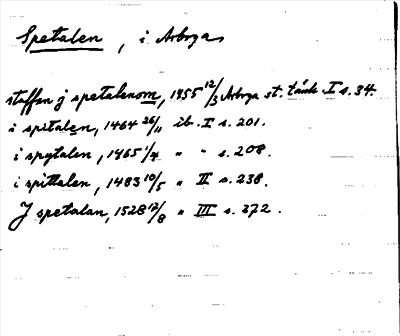 Spetalen, i Arboga
staffan j spetalenom, 1455 12/3 Arboga st. tänk I s. 34.
i spitalen, 1464 26/11 ib. I s. 201.
i spytalen, 1465 1/7 " " s. 208.
i spittalen, 1483 10/5 " II s. 238.
J spetalan, 1528 12/8 " III s. 372.